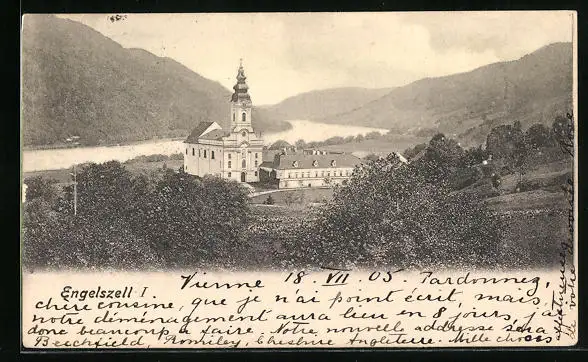 Engelszell I
Vienne 18.VII 05 Pardonnez,
chère cousine, que je n'ai point écrit, mais,
notre déménagement aura lieu en 8 jours, j'ai
donc beaucoup à faire. Notre nouvelle addresse sera
Beechfield, Romiley, Cheshire Angleterre. Mille choses
de votre